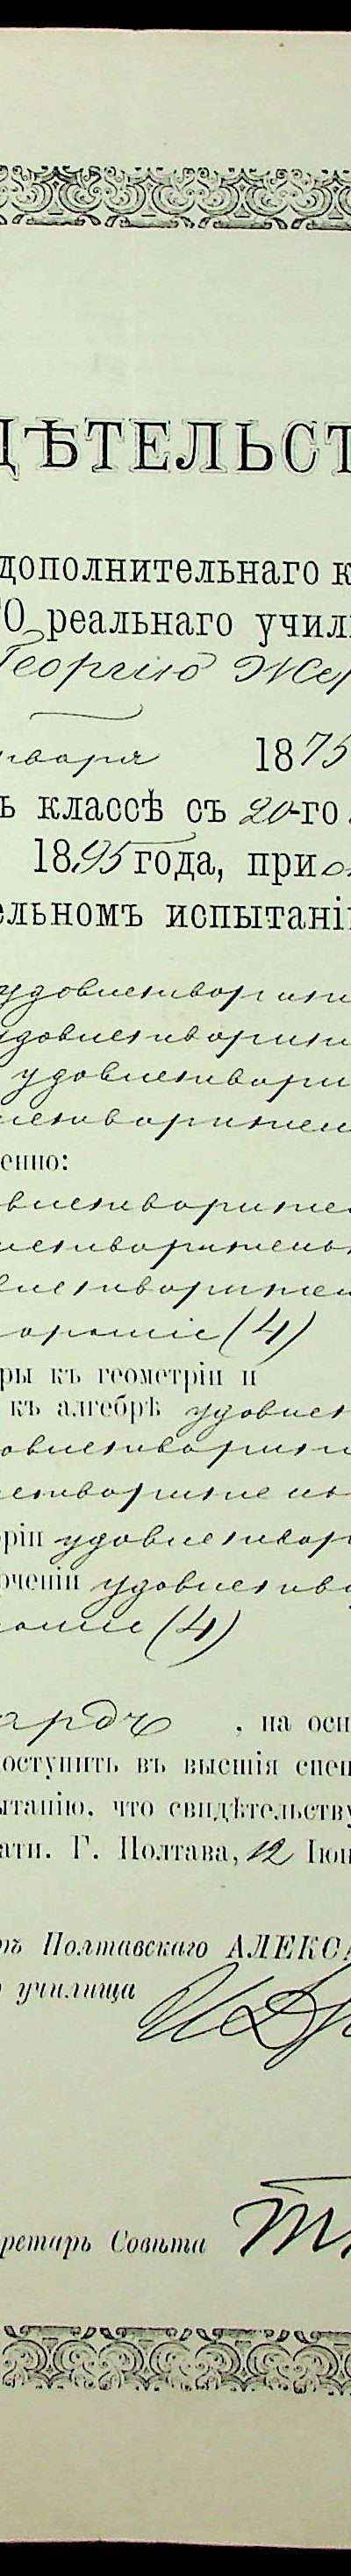 ДѢТЕЛЬСТ
дополнительнаго к
ГО реальнаго учил
Георгию Же
нваря 1875
ъ классѣ съ 20-го
1895 года, при о
ельномъ испытані
удовлетворите
удовлетворите
удовлетвори
летворителн
енно:
влетворител
летворительн
влетворител
орошіе (4)
ры къ геометріи и
къ алгебрѣ удовлет
овлетворите
летворительн
ріи удовлетвор
рченіи удовлетво
рошіе (4)
ардъ , на осн
поступить въ высшія спец
ытанію, что свидѣтельству
ати. Г. Полтава, 12 Іюн
ръ Полтавскаго АЛЕКСА
о училища
ретарь Совѣта